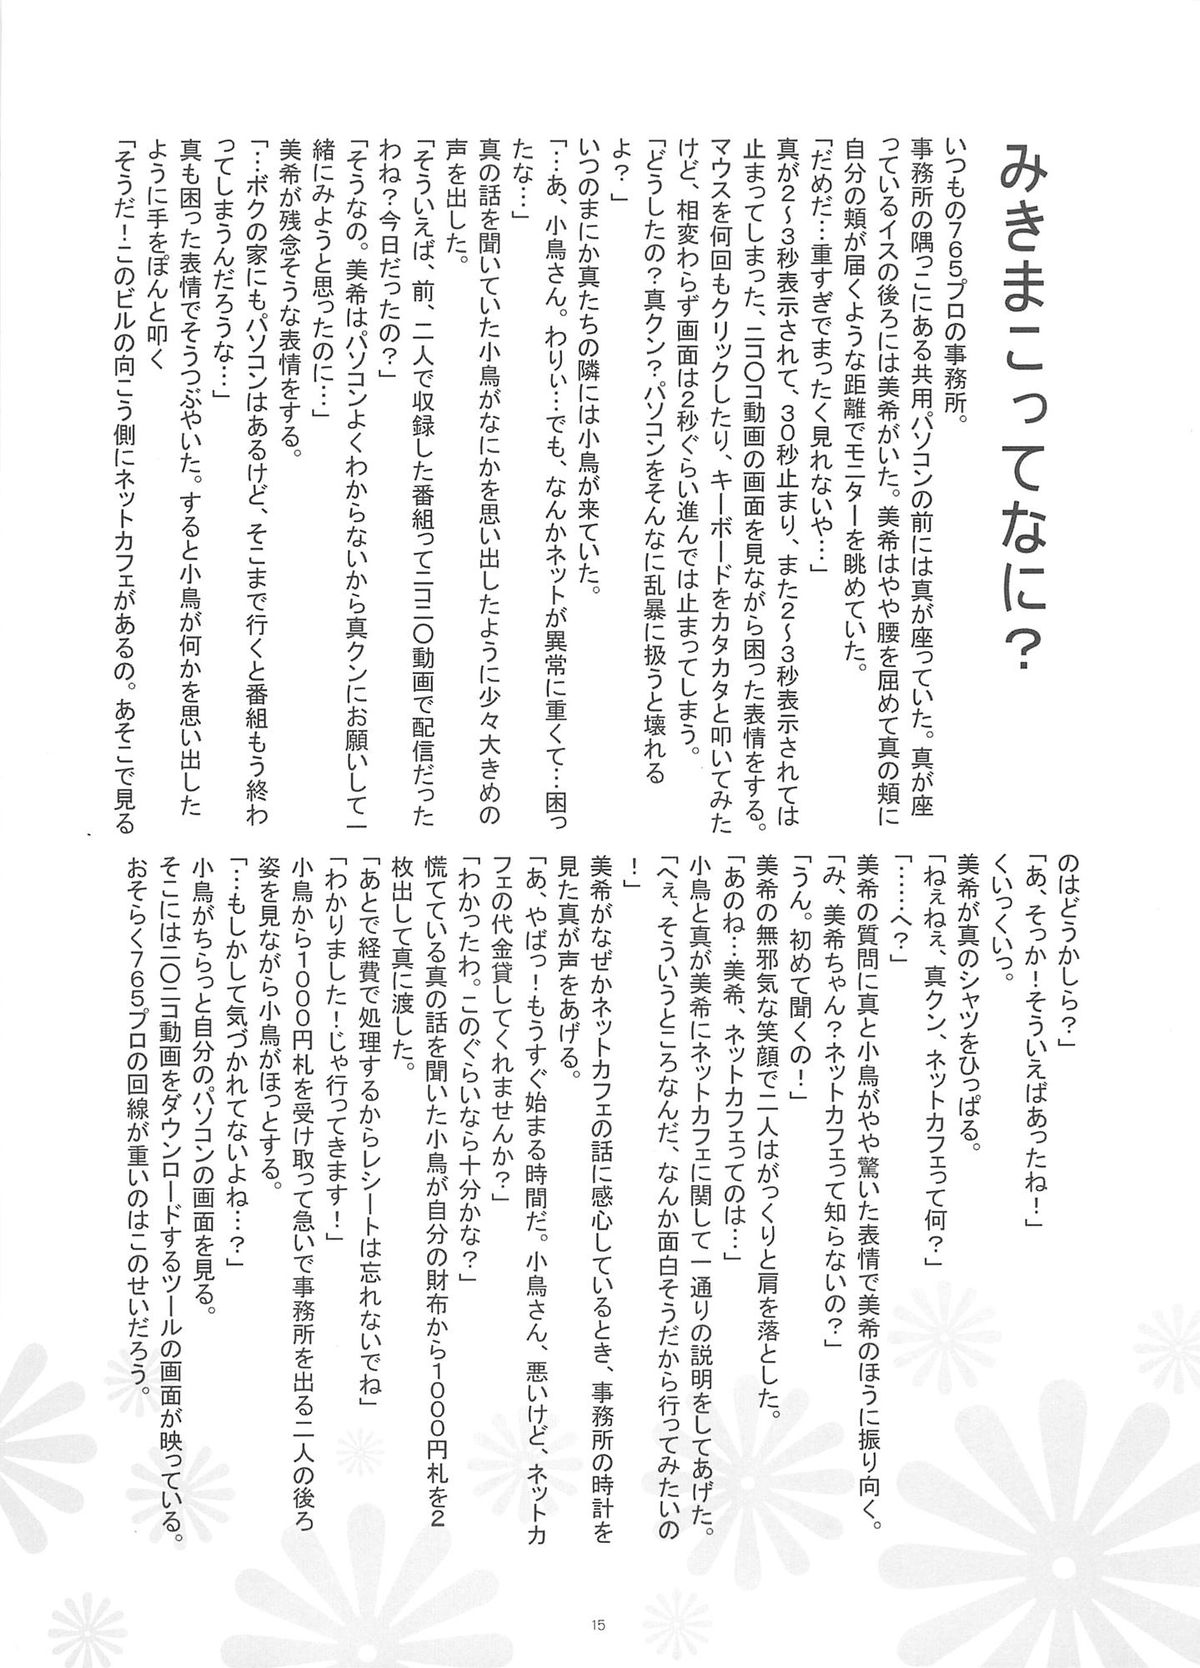 みきまこってなに？
いつもの７６５プロの事務所。
事務所の隅っこにある共用パソコンの前には真が座っていた。真が座
っているイスの後ろには美希がいた。美希はやや腰を屈めて真の頬に
自分の頬が届くような距離でモニターを眺めていた。
「だめだ…重すぎでまったく見れないや…」
真が２～３秒表示されて、３０秒止まり、また２～３秒表示されては
止まってしまった、ニコ〇コ動画の画面を見ながら困った表情をする。
マウスを何回もクリックしたり、キーボードをカタカタと叩いてみた
けど、相変わらず画面は２秒ぐらい進んでは止まってしまう。
「どうしたの？真クン？パソコンをそんなに乱暴に扱うと壊れる
よ？」
いつのまにか真たちの隣には小鳥が来ていた。
「…あ、小鳥さん。わりぃ…でも、なんかネットが異常に重くて…困っ
たな…」
真の話を聞いていた小鳥がなにかを思い出したように少々大きめの
声を出した。
「そういえば、前、二人で収録した番組ってニコニ〇動画で配信だった
わね？今日だったの？」
「そうなの。美希はパソコンよくわからないから真クンにお願いして一
緒にみようと思ったのに…」
美希が残念そうな表情をする。
「…ボクの家にもパソコンはあるけど、そこまで行くと番組もう終わ
ってしまうんだろうな…」
真も困った表情でそうつぶやいた。すると小鳥が何かを思い出した
ように手をぽんと叩く
「そうだ！このビルの向こう側にネットカフェがあるの。あそこで見る
のはどうかしら？」
「あ、そっか！そういえばあったね！」
くいっくいっ。
美希が真のシャツをひっぱる。
「ねぇねぇ、真クン、ネットカフェって何？」
「……へ？」
美希の質問に真と小鳥がやや驚いた表情で美希のほうに振り向く。
「み、美希ちゃん？ネットカフェって知らないの？」
「うん。初めて聞くの！」
美希の無邪気な笑顔で二人はがっくりと肩を落とした。
「あのね…美希、ネットカフェってのは…」
小鳥と真が美希にネットカフェに関して一通りの説明をしてあげた。
「へぇ、そういうところなんだ、なんか面白そうだから行ってみたいの
！」
美希がなぜかネットカフェの話に感心しているとき、事務所の時計を
見た真が声をあげる。
「あ、やばっ！もうすぐ始まる時間だ。小鳥さん、悪いけど、ネットカ
フェの代金貸してくれませんか？」
「わかったわ。このぐらいなら十分かな？」
慌てている真の話を聞いた小鳥が自分の財布から１０００円札を２
枚出して真に渡した。
「あとで経費で処理するからレシートは忘れないでね」
「わかりました！じゃ行ってきます！」
小鳥から１０００円札を受け取って急いで事務所を出る二人の後ろ
姿を見ながら小鳥がほっとする。
「…もしかして気づかれてないよね…？」
小鳥がちらっと自分のパソコンの画面を見る。
そこには二〇ニコ動画をダウンロードするツールの画面が映っている。
おそらく７６５プロの回線が重いのはこのせいだろう。
15